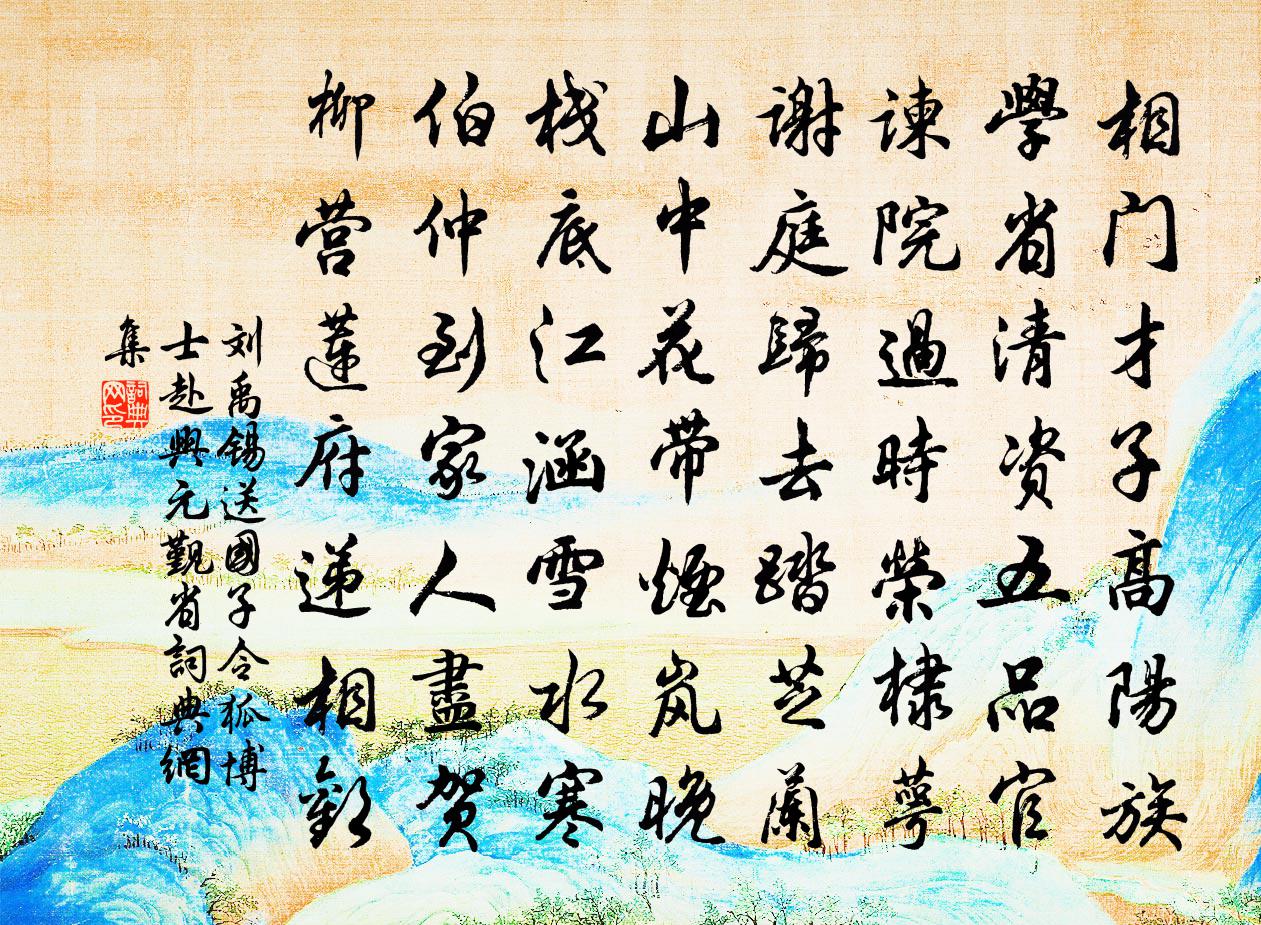 相门才子高陽族
學省清资五品官
諫院過時榮棣萼
谢庭歸去踏芝蘭
山中花带煙岚晚
栈底江涵雪水寒
伯仲到家人盡贺
柳营莲府递相歡
刘禹锡送國子令狐博
士赴興元觐省詞典網
集
詞典网印